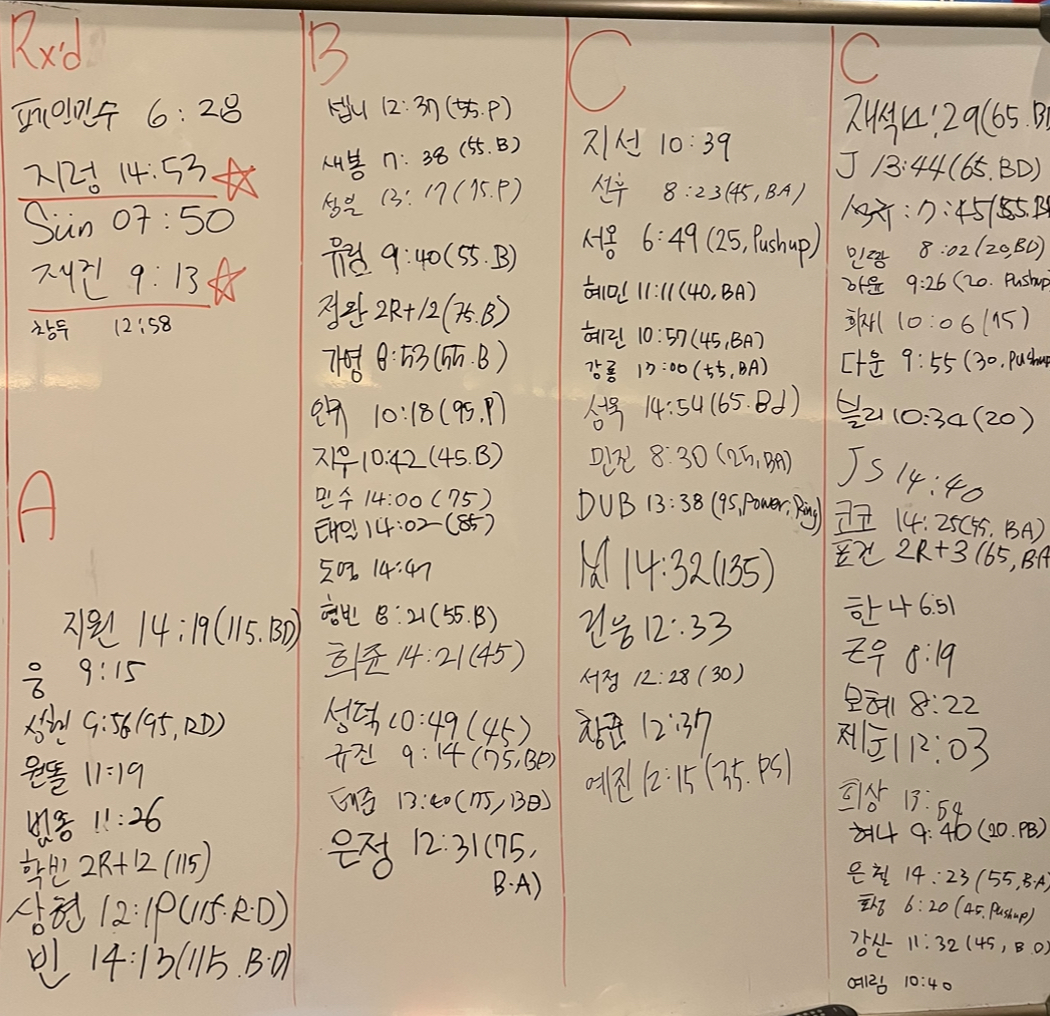 Rx'd
페인민수 6:28
지정 14:53
Sün 07:50
재진 9:13
창두 12:58
A
지원 14:19(115.BD)
웅 9:15
성현 9:56(95, RD)
원똘 11:19
11:26
학빈 2R+12 (115)
상현 12:19(115.R.D)
빈 14:13(115.B.D)
B
셉니 12:37(55.P)
새봉 7:38 (55.B)
성일 13:17(75.P)
유림 9:40(55.B)
정완 2R+12(75.B)
가영 8:53(55.B)
10:18(95.P)
지우 10:42(45.B)
민수 14:00 (75)
태일 14:02 (85)
도영 14:47
형빈 8:21(55.B)
희준 14:21(45)
성덕 10:49(45)
규진 9:14(75,BD)
태준 13:40
은정 12:31(75,
B.A)
C
지선 10:39
선우 8:23(45, BA)
서용 6:49(25, Pushup)
혜민 11:11(40, BA)
혜린 10:57(45,BA)
강룡 13:00(55, BA)
성욱 14:54(65.Bd)
민진 8:30 (25,BA)
DUB 13:38(95,Power, Ring)
14:32(135)
건웅 12:33
서정 12:28(30)
창준 12:37
예진 12:15(35.PS)
C
재석 29(65.BD
J 13:44(65.BD)
:45
민광 8:02(20,BD)
하윤 9:26(20. Pushup
희재 10:06(15)
다운 9:55(30,Pushup
블리 10:34(20)
JS 14:40
코코 14:25(55. BA)
표건 2R+3(65,BA
한나 6:51
근우 8:19
보혜 8:22
제니 12:03
희상 13:54
혀나 9:40(20.PB)
은철 14:23(55,B.A)
화정 6:20(45,Pushup)
강산 11:32(45, B.D)
예림 10:40